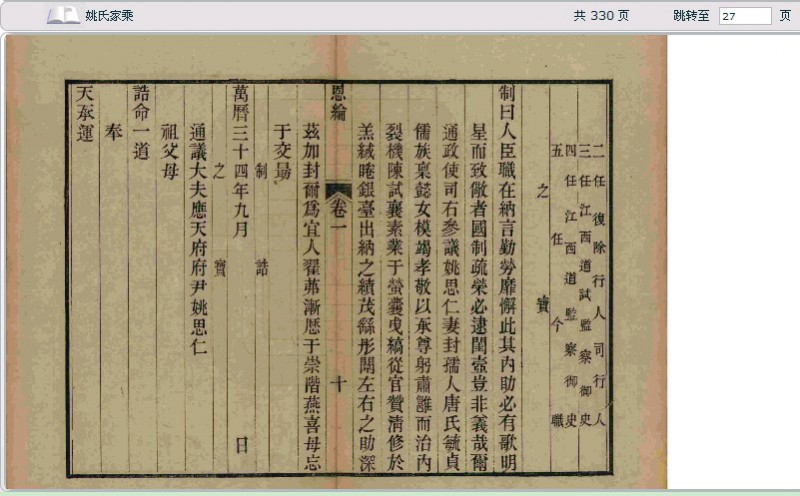 姚氏家乘
共 330 页
跳转至 27 页
二任復除行人司行人
三任江西道試監察御史
四任江西道監察御史
五任今職
之寶
制曰人臣職在納言勤勞靡懈此其內助必有歌明
星而致儆者國制疏榮必逮閨壼豈非義哉爾
通政使司右參議姚思仁妻封孺人唐氏毓貞
儒族稟懿女模竭孝敬以承尊躬肅雝而治內
裂機陳試襄素業于螢囊曳縞從官贊清修於
羔絨睠銀臺出納之績茂繇彤闈左右之助深
恩綸
卷一
十
茲加封爾爲宜人翟茀漸歷于崇階燕喜毋忘
于交勗
制誥
萬曆三十四年九月 日
之寶
通議大夫應天府府尹姚思仁
祖父母
誥命一道
奉
天承運